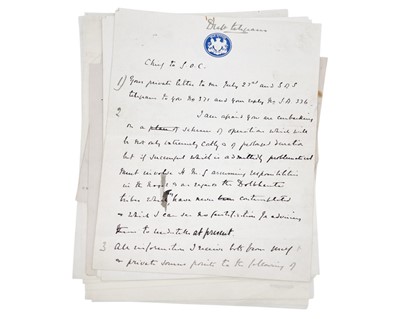 Draft telegram
Chief to S.O.C.
1) Your private letter to me July 23rd and S of S
telegram to you No 371 and your reply No S.D. 336
2 I am afraid you are embarking
on a scheme of operations which will
be not only extremely costly & of prolonged duration
but if successful which is admittedly problematical
must involve H.M.G assuming responsibilities
in the as regards the Dolbahanta
tribes which have never been contemplated
& which I can see no justification for advising
them to undertake at present
3 All information I receive both from
& private sources points to the following of